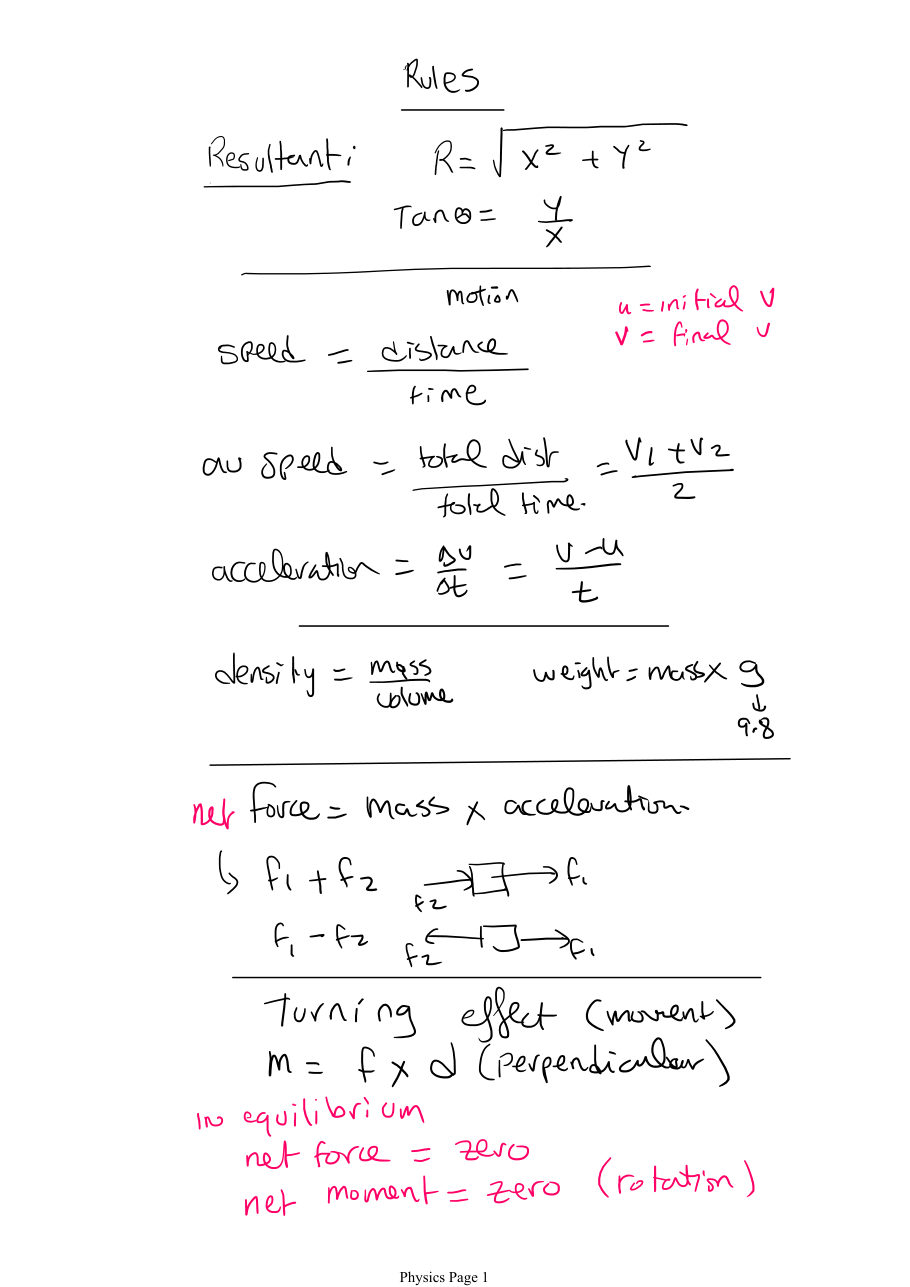 Rules
Resultant: R = √(X² + Y²)
Tanθ = Y/X
motion
u = initial V
V = final v
speed = distance/time
av speed = total dist/total time. = (V1 + V2)/2
acceleration = Δv/Δt = (v - u)/t
density = mass/volume weight = mass x g
↓
9.8
net force = mass x acceleration.
↳ f1 + f2 f2 → □ → f1
f1 - f2 f2 ← □ → f1
Turning effect (moment)
m = f x d (perpendicular)
in equilibrium
net force = zero
net moment = zero (rotation)
Physics Page 1